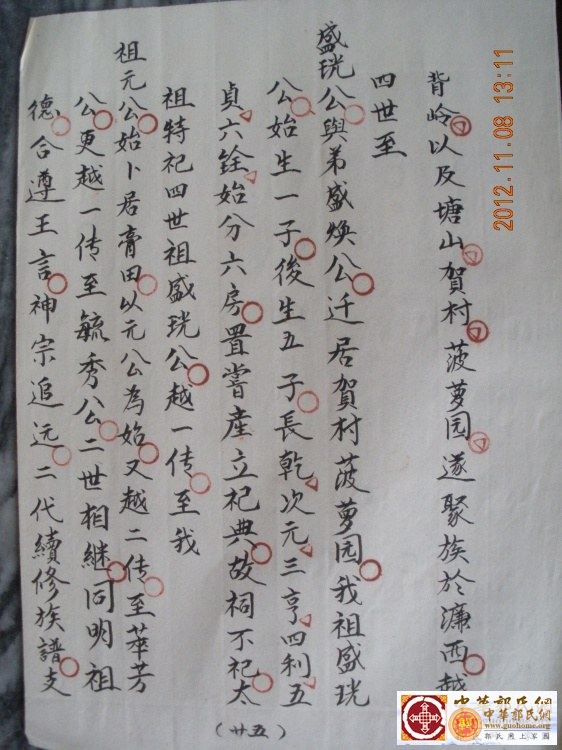 背岭以及塘山賀村菠萝园遂聚族於濂西越
四世至
盛珖公與弟盛焕公迁居賀村菠萝园我祖盛珖
公始生一子後生五子長乾次元三亨四利五
貞六銓始分六房置嘗産立祀典故祠不祀太
祖特祀四世祖盛珖公越一传至我
祖元公始卜居膏田以元公為始又越二传至華芳
公更越一传至毓秀公二世相継同明祖
德合遵王言神宗追远二代續修族譜支
(廿五)
2012.11.08 13:11
中華郭氏網
中華郭氏網
www.guohome.org
郭氏網上家園